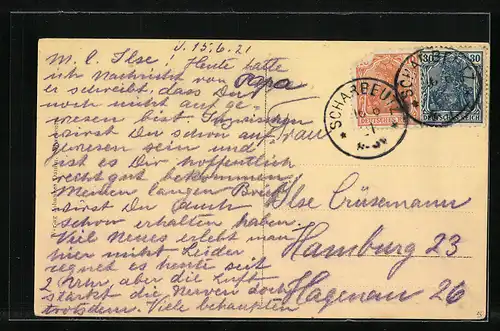 d. 15.6.21
M. l. Ilse! Heute hatte
ich Nachricht von Papa
er schreibt, dass Du
noch nicht auf ge-
wesen bist. Inzwischen
wirst Du schon auf
gewesen sein und
ist es Dir hoffentlich
recht gut bekommen.
Meinen langen Brief
wirst Du auch
schon erhalten haben.
Viel Neues erlebt man
hier nicht. Leider
regnet es heute seit
2 Uhr, aber die Luft
stärkt die Nerven doch
trotzdem. Viele behaupten
Frau
Ilse Crüsemann
Hamburg 23
Hagenau 26
SCHARBEUTZ
30 30
DEUTSCHES REICH
SCHARBEUTZ